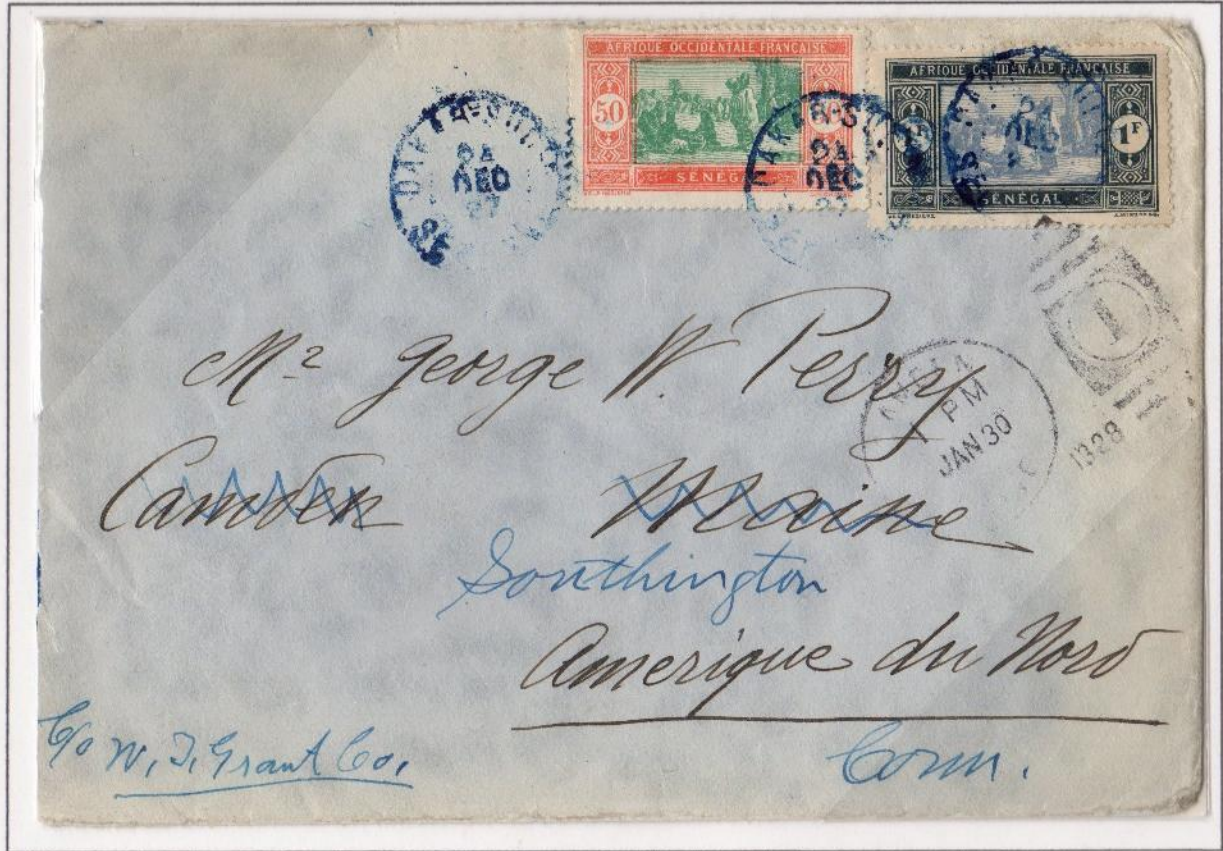 AFRIQUE OCCIDENTALE FRANÇAISE
50
SÉNÉGAL
AFRIQUE OCCIDENTALE FRANÇAISE
1F
SÉNÉGAL
24
DEC
27
24
DEC
24
DEC
1
PM
JAN 30
1328
Mr George W. Perry
Camden Maine
Southington
Amerique du Nord
C/o W. T. Grant Co.
Conn.